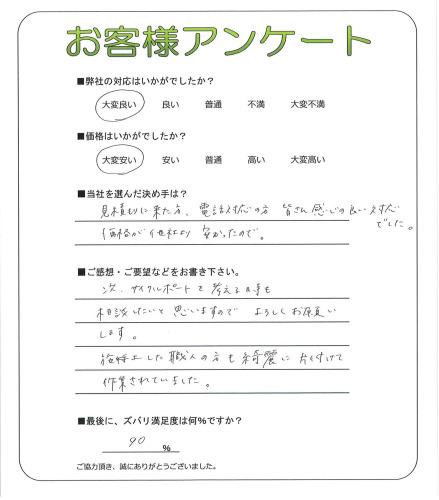 お客様アンケート
■弊社の対応はいかがでしたか？
大変良い 良い 普通 不満 大変不満
■価格はいかがでしたか？
大変安い 安い 普通 高い 大変高い
■当社を選んだ決め手は？
見積もりに来た方、電話対応の方 皆さん感じの良い対応
でした。
価格が他社より 安かったので。
■ご感想・ご要望などをお書き下さい。
次、サイクルポートを考える時も
相談したいと思いますので よろしくお願い
します。
施工した職人の方も綺麗に片付けて
作業されていました。
■最後に、ズバリ満足度は何%ですか？
90 %
ご協力頂き、誠にありがとうございました。